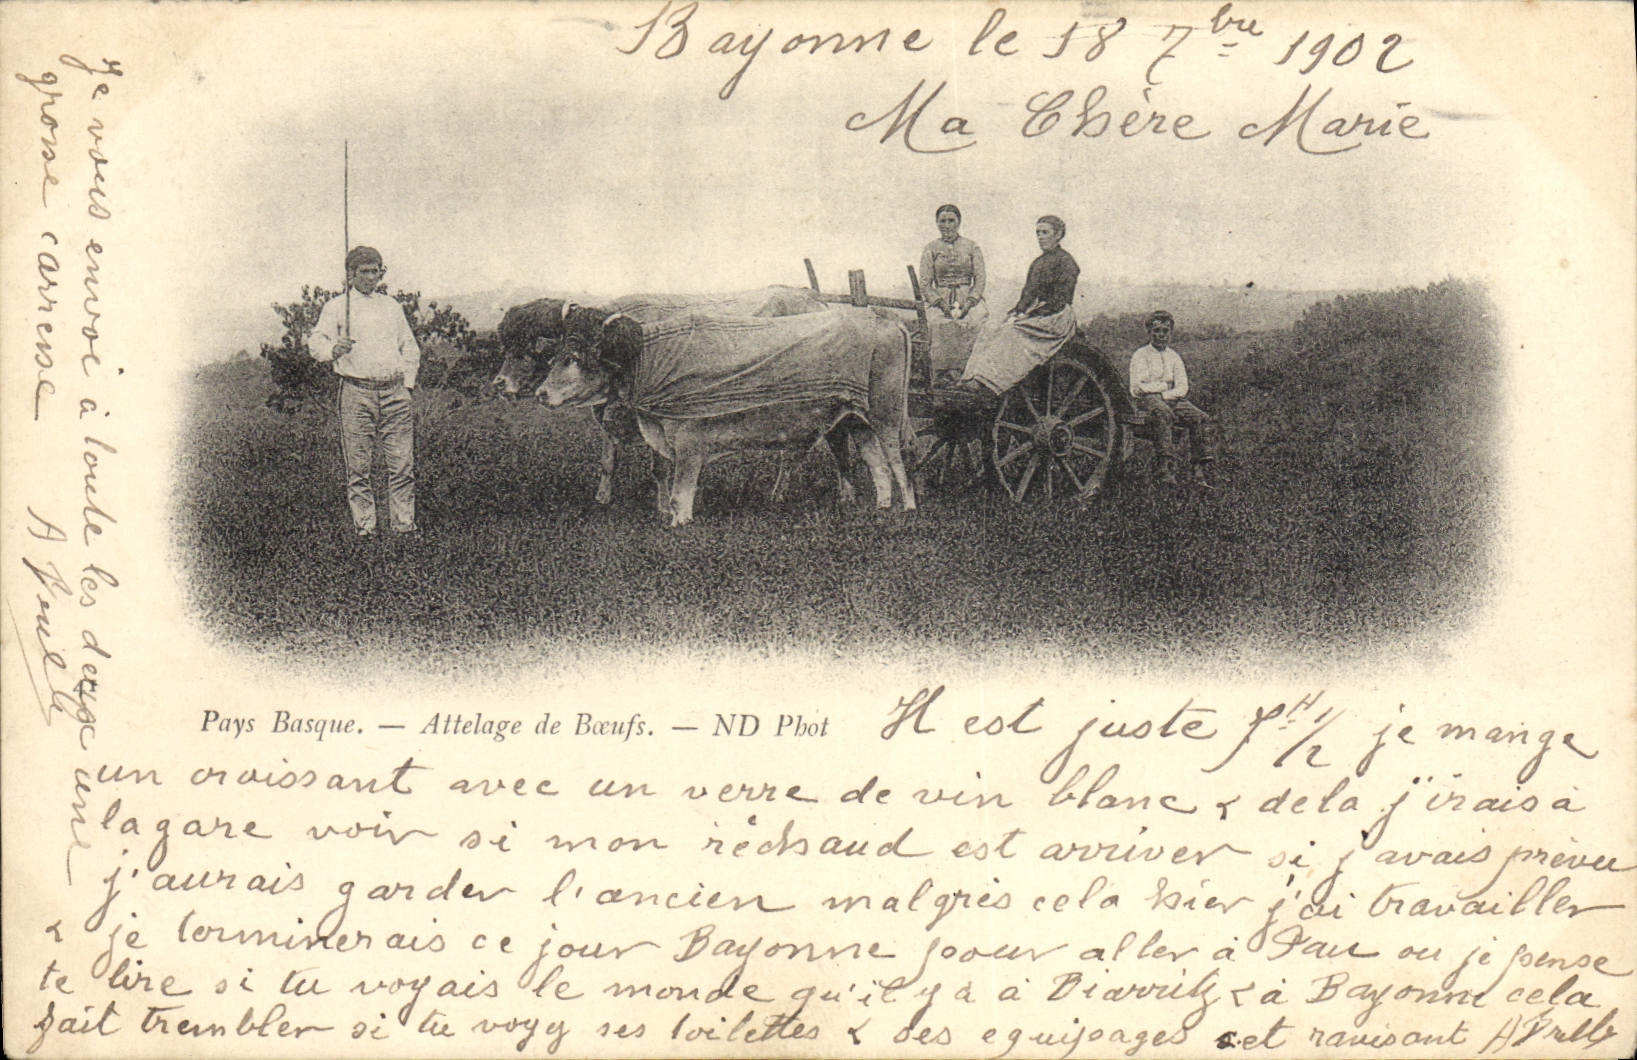 Bayonne le 18 7bre 1902
Ma Chère Marie
Pays Basque. — Attelage de Bœufs. — ND Phot
Il est juste 7H 1/2 je mange
un croissant avec un verre de vin blanc & dela j'irais à
la gare voir si mon réchaud est arriver si j'avais prévu
j'aurais garder l'ancien malgrés cela hier j'ai travailler
& je terminerais ce jour Bayonne pour aller à Pau ou je pense
te lire si tu voyais le monde qu'il y à à Biarritz & à Bayonne cela
fait trembler si tu voyy ses toilettes & ses equipages cet ravisant
Je vous envoi à toute les deux une
grosse carresse